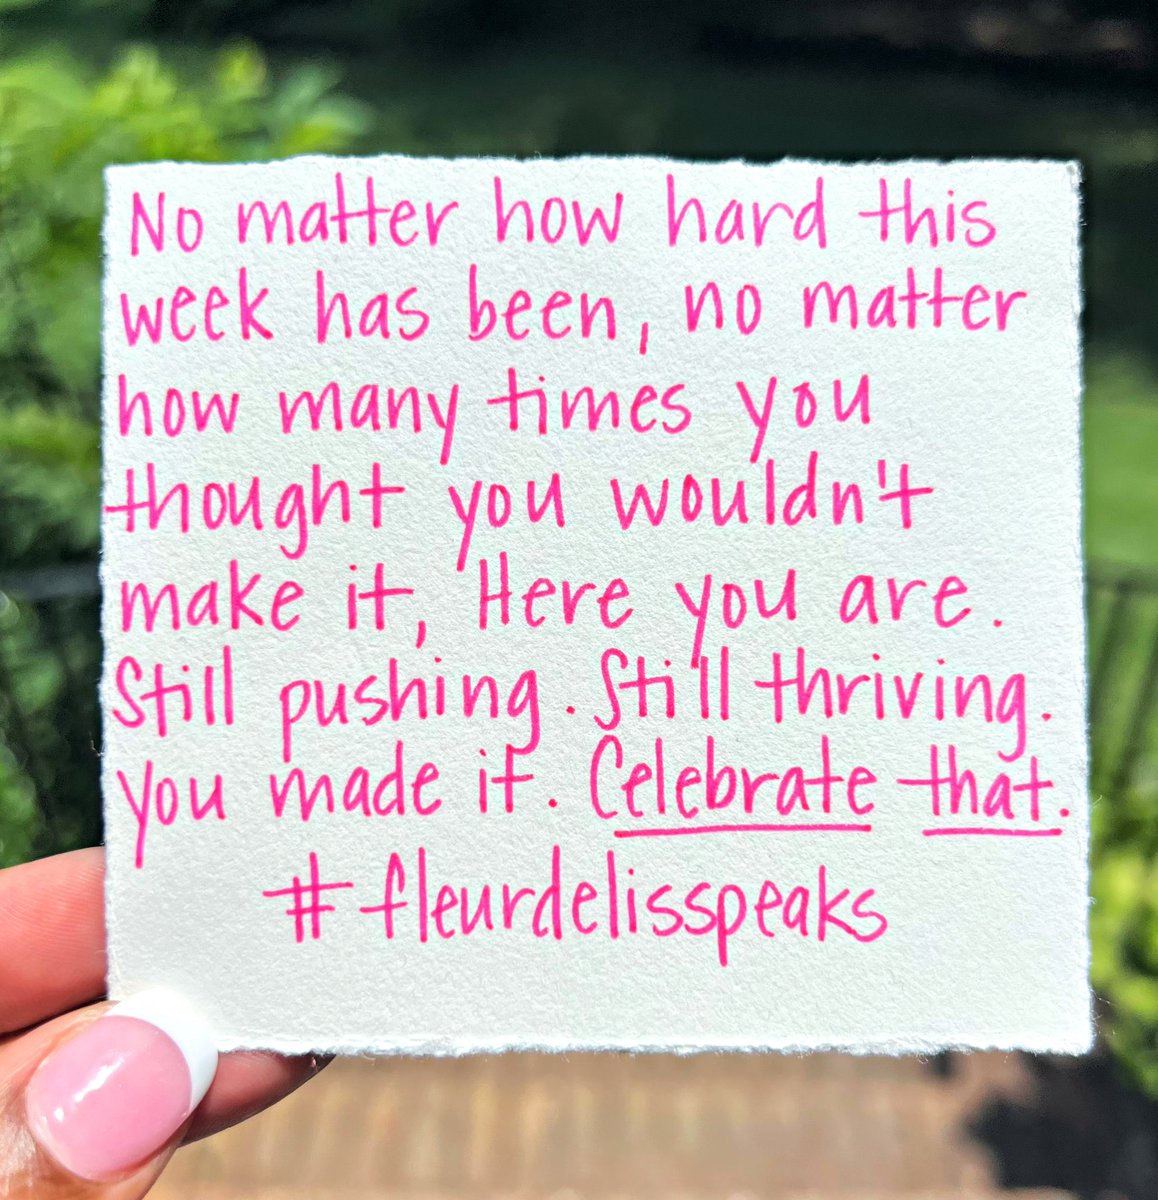 No matter how hard this
week has been, no matter
how many times you
thought you wouldn't
make it, Here you are.
Still pushing. Still thriving.
You made it. Celebrate that.
#fleurdelisspeaks